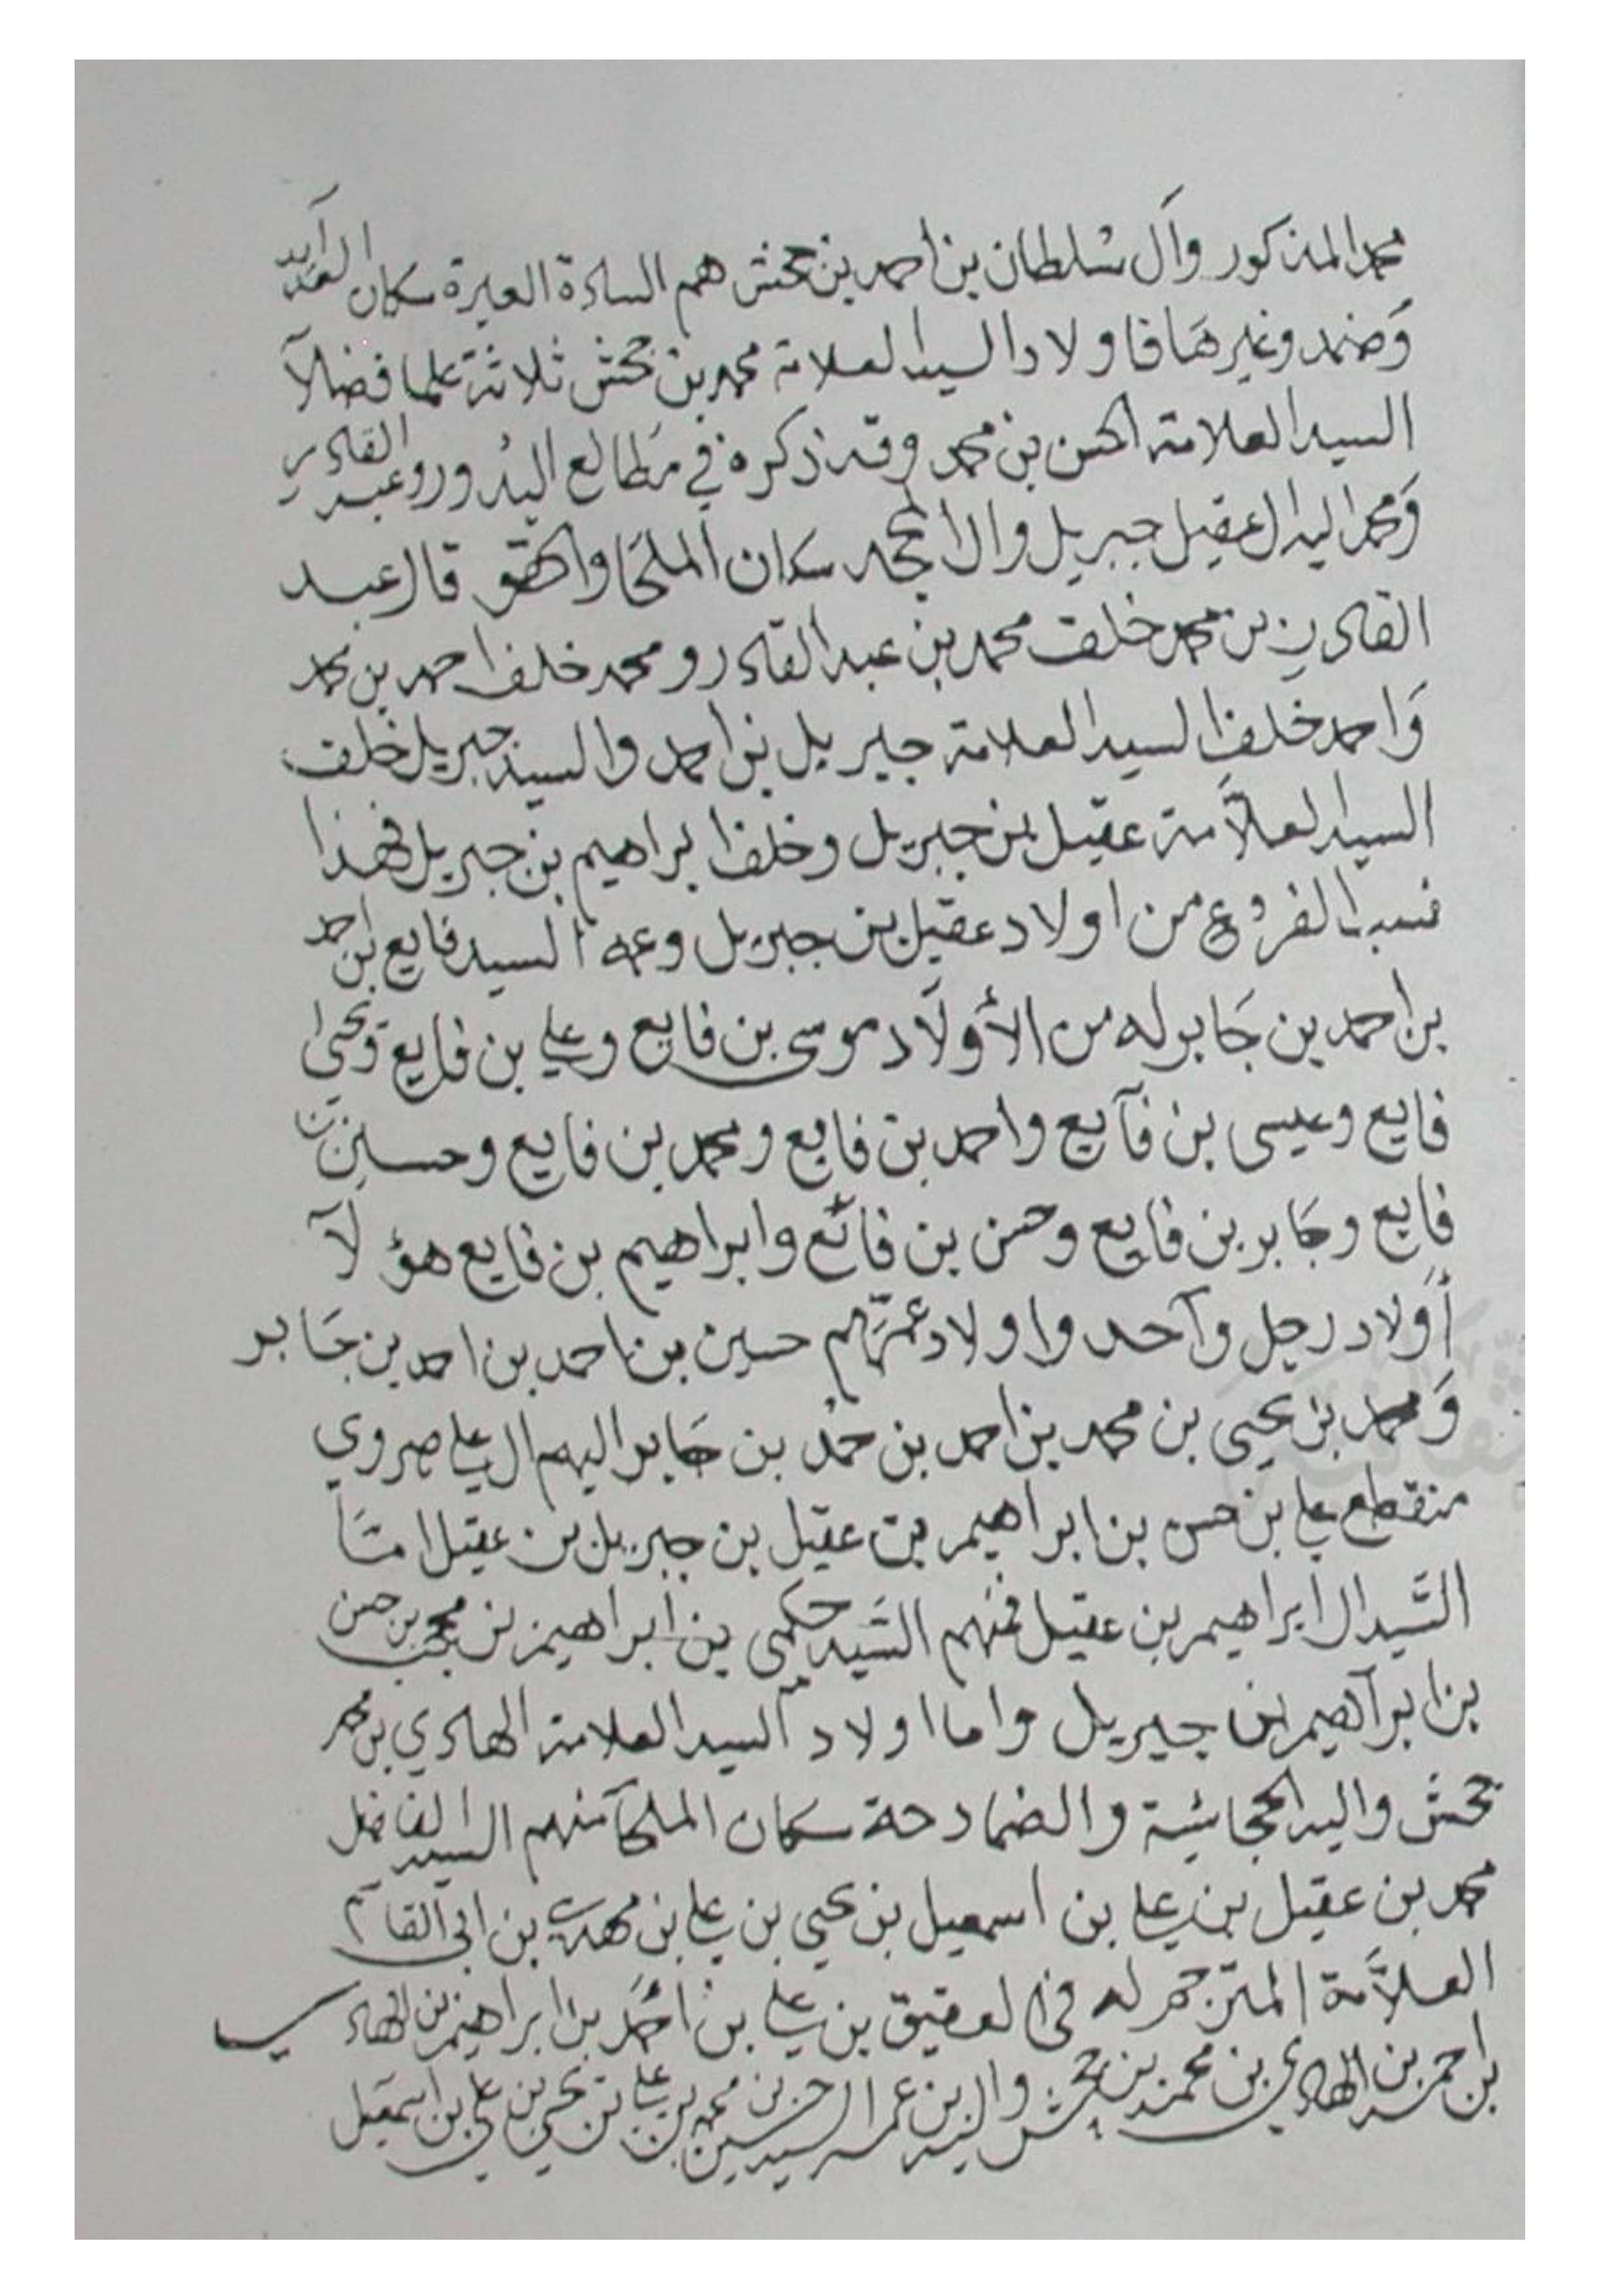 محمد المذكور وآل سلطان بن أحمد بن بخش هم السادة العبرة سكان
وَضمد وغيرهَا فاولاد السيد العلامة محمد بن بخش ثلاثة علما فضلآ
السيد العلامة الحسن بن محمد وقد ذكره في مَطالع البدور وعبد القادر
وَمحمد اليه ال عقيل جبريل والا سكان الملحَا والحقو قال عبد
القادر بن محمد خلف محمد بن عبد القادر ومحمد خلف احمد بن محمد
وَاحمد خلف السيد العلامة جبريل بن احمد والسيد جبريل خلف
السيد العلاَّمة عقيل بن جبريل وخلف ابراهيم بن جبريل فهذا
نسب الفروع من اولاد عقيل بن جبريل وعمه السيد فايع بن احمد
بن احمد بن جَابر له من الأولَاد موسى بن فايع وعلي بن فايع ويحيى
فايع وعيسى بن فآيع واحمد بن فايع ومحمد بن فايع وحسين بن
فايع وجَابر بن فايع وحسن بن فائع وابراهيم بن فايع هؤلآ
أَولاد رجل وآحد واولاد عمّهم حسين بن احمد بن احمد بن جَابر
وَمحمد بن يحيى بن محمد بن احمد بن حمد بن جَابر اليهم ال علي
منقطع علي بن حسن بن ابراهيم بن عقيل بن جبريل بن عقيل امَّا
السَّيد ال ابراهيم بن عقيل فمنهم السَّيد حكمي بن ابراهيم بن محمد بن حسن
بن ابرآهيم بن جبريل واما اولاد السيد العلامة الهادي بن محمد
بخش واليه والضمادحة سكان الملحآ منهم السيد الفاضل
محمد بن عقيل بن علي بن اسمعيل بن يحيى بن علي بن مهدي بن ابي القاسم
العلاَّمة المترجم له في العقيق بن علي بن أحمَد بن ابراهيم بن الهادي
بن احمد بن الهادي بن محمد بن بخش واليه بن عمه السيد حسين بن محمد بن علي بن يحيى بن علي بن اسمعيل